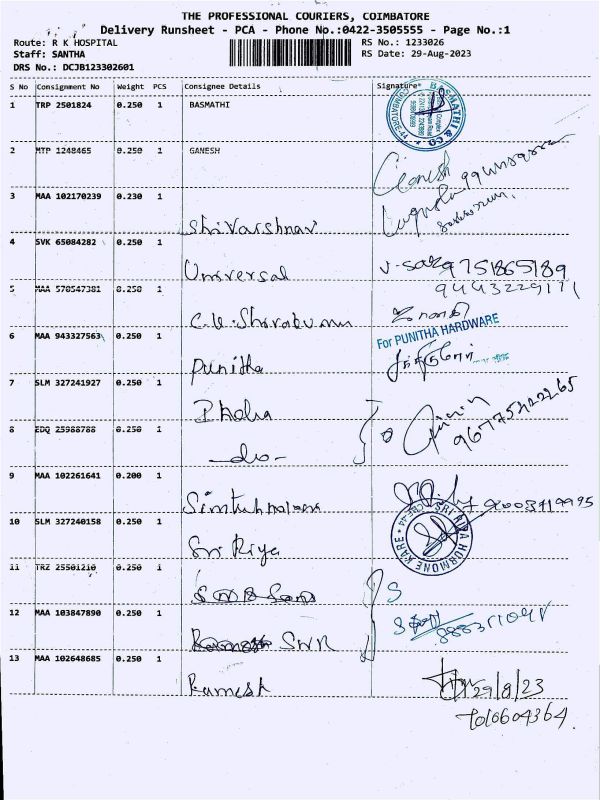 THE PROFESSIONAL COURIERS, COIMBATORE
Delivery Runsheet - PCA - Phone No.:0422-3505555 - Page No.:1
Route: R K HOSPITAL RS No.: 1233026
Staff: SANTHA RS Date: 29-Aug-2023
DRS No.: DCJB123302601
S No Consignment No Weight PCS Consignee Details Signature
1 TRP 2501824 0.250 1 BASMATHI BASMATHI & CO COIMBATORE
2 MTP 1248465 0.250 1 GANESH Ganesh
3 MAA 102170239 0.230 1 Shrivarshnav
4 SVK 65084282 0.250 1 Universal 9751865189
5 MAA 570547381 0.250 1 C.U. Shivakumar 9443229171
6 MAA 943327563 0.250 1 Punitha For PUNITHA HARDWARE
7 SLM 327241927 0.250 1
8 EDQ 25988788 0.250 1 -do-
9 MAA 102261641 0.200 1 9003419995
10 SLM 327240158 0.250 1 Sri Riya SRI RIYA HORMONE KARE
11 TRZ 25501210 0.250 1
12 MAA 103847890 0.250 1 SWR
13 MAA 102648685 0.250 1 Ramesh 29/8/23